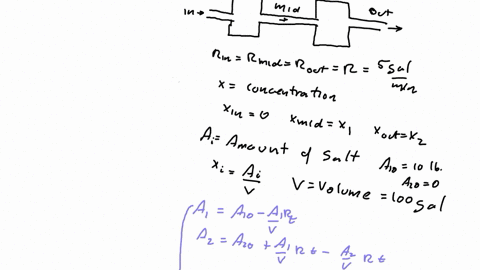 in → mid → out →
Rin = Rmid = Rout = R = 5 gal/min
x = concentration
xin = 0 xmid = x1 xout = x2
Ai = Amount of Salt A10 = 10 lb.
A20 = 0
xi = Ai/V V = Volume = 100 gal
A1 = A10 - A1/V Rt
A2 = A20 + A1/V Rt - A2/V Rt